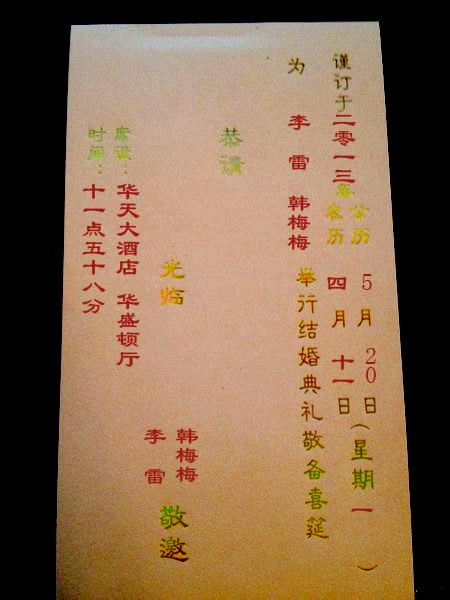 谨订于二零一三年
公历 5月20日(星期一)
农历 四月十一日
为
李雷 韩梅梅 举行结婚典礼敬备喜筵
恭请
光临
韩梅梅
李雷
敬邀
席设:华天大酒店 华盛顿厅
时间:十一点五十八分